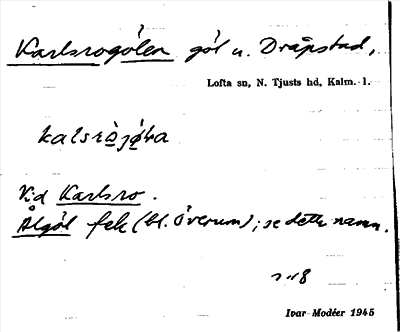 Karlsrogölen göl u. Dråpstad,
Lofta sn, N. Tjusts hd, Kalm. l.
kalsròjø̀ḷa
Vid Karlsro.
Ålgöl fek (bl. Överum); se detta namn.
Ivar Modéer 1945